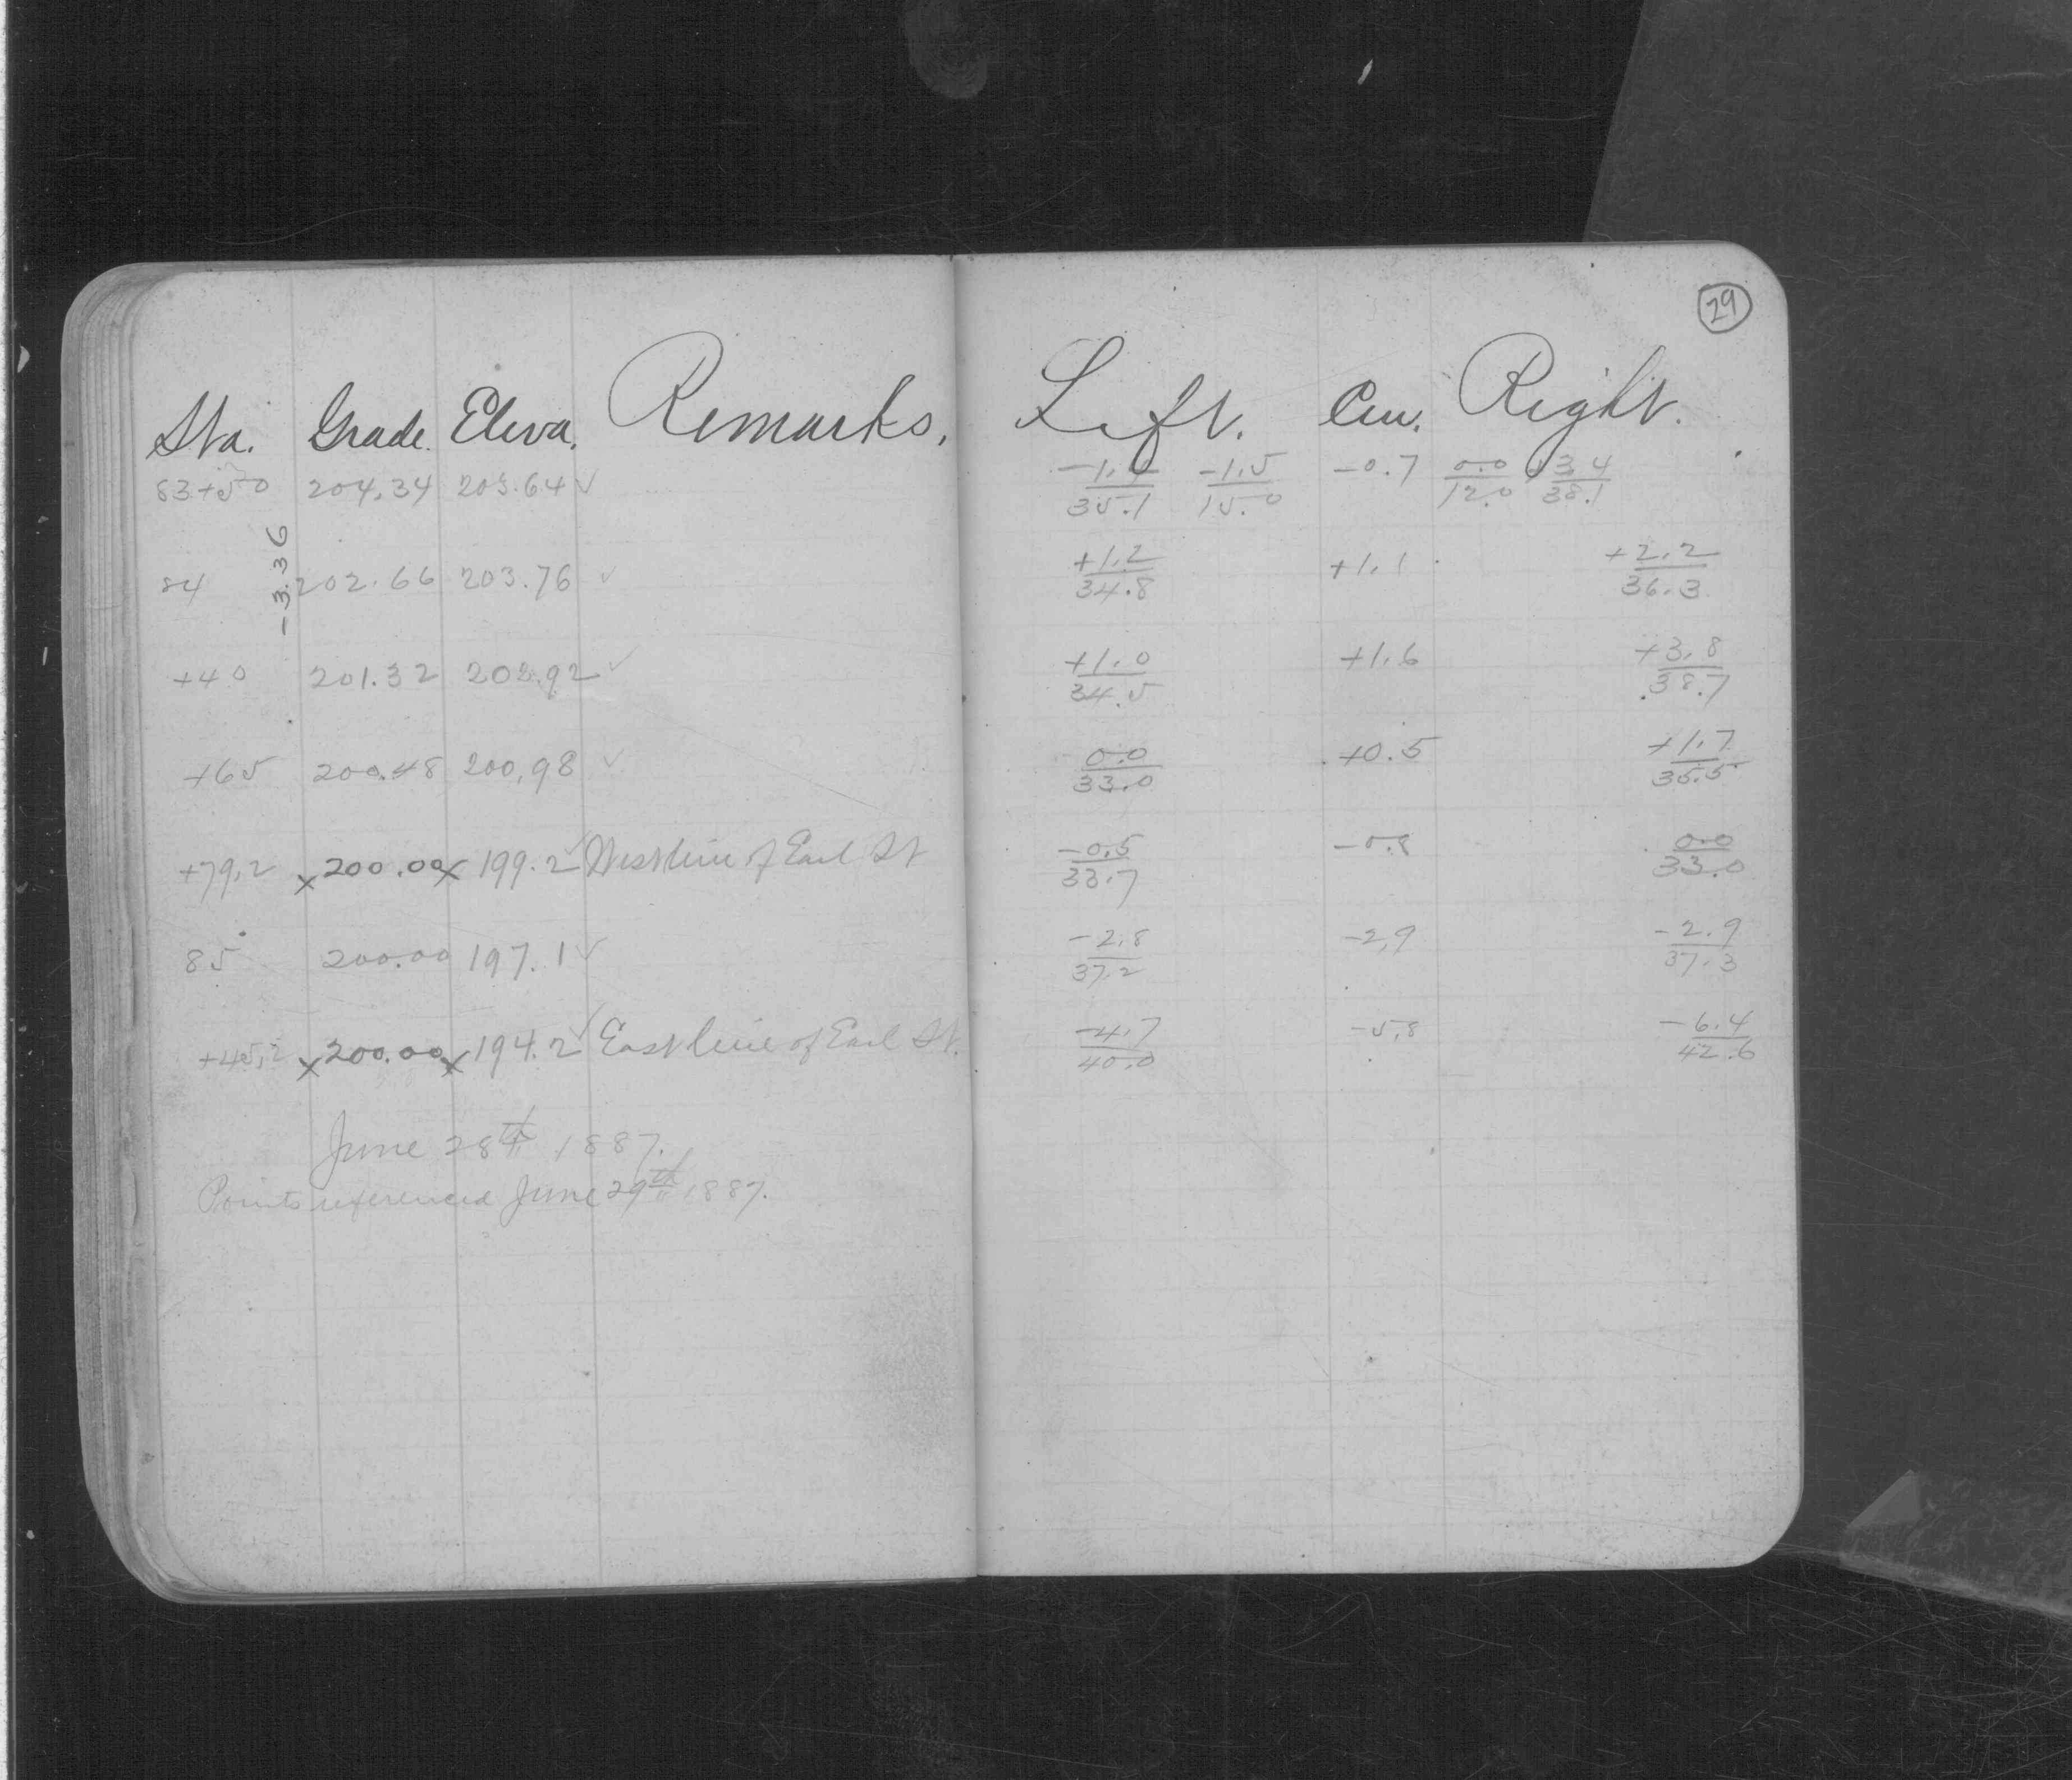 29
Sta. Grade. Eleva. Remarks. Left. Cen. Right.
83+50 204.34 203.64 ✓ -1.4/35.1 -1.5/15.0 -0.7 0.0/12.0 +3.4/38.1
-3.36
84 202.66 203.76 ✓ +1.2/34.8 +1.1 +2.2/36.3
+40 201.32 202.92 ✓ +1.0/34.5 +1.6 +3.8/38.7
+65 200.48 200.98 ✓ 0.0/33.0 +0.5 +1.7/35.5
+79.2 x 200.00 x 199.2 ✓ West line of Earl St -0.5/33.7 -0.8 0.0/33.0
85 200.00 197.1 ✓ -2.8/37.2 -2.9 -2.9/37.3
+45.2 x 200.00 x 194.2 ✓ East line of Earl St. -4.7/40.0 -5.8 -6.4/42.6
June 28th 1887.
Points referenced June 29th 1887.